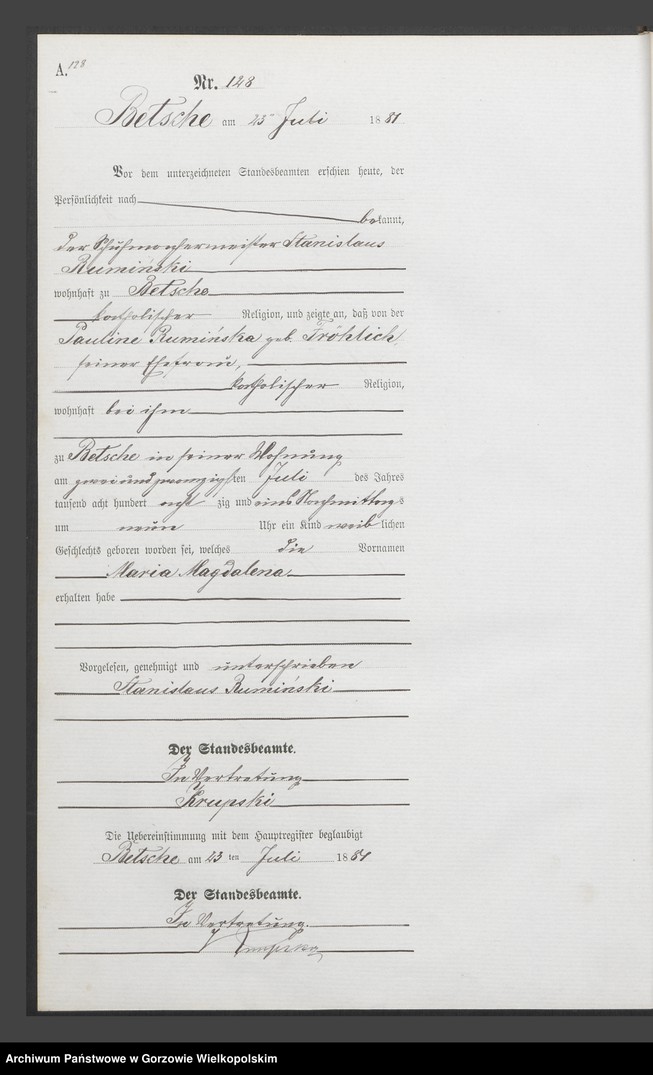 A. 128
Nr. 128
Betsche am 23ten Juli 1881
Vor dem unterzeichneten Standesbeamten erschien heute, der
Persönlichkeit nach
bekannt,
der Schuhmachermeister Stanislaus
Rumiński
wohnhaft zu Betsche
katholischer Religion, und zeigte an, daß von der
Pauline Rumińska geb. Fröhlich,
seiner Ehefrau,
katholischer Religion,
wohnhaft bei ihm
zu Betsche in seiner Wohnung
am zwei und zwanzigsten Juli des Jahres
tausend acht hundert acht zig und eins Nachmittags
um neun Uhr ein Kind weib lichen
Geschlechts geboren worden sei, welches die Vornamen
Maria Magdalena
erhalten habe
Vorgelesen, genehmigt und unterschrieben
Stanislaus Rumiński
Der Standesbeamte.
In Vertretung
Krupski
Die Uebereinstimmung mit dem Hauptregister beglaubigt
Betsche am 23 ten Juli 1881
Der Standesbeamte.
In Vertretung.
Archiwum Państwowe w Gorzowie Wielkopolskim